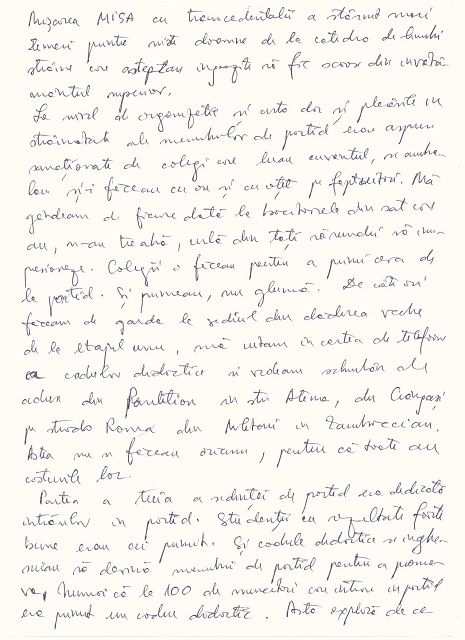 Mișcarea MISA cu transcedentalii a stârnit mari
temeri printre niște doamne de la catedra de limbi
străine care așteptau îngrozite să fie scoase din învăță
mântul superior.
La nivel de organizație și asta dar și plecările în
străinătate ale membrilor de partid erau aspru
sancționate de colegii care luau cuvântul, se amba-
lau și-i făceau cu ou și cu oțet pe făptuitori. Mă
gândeam de fiecare dată la bocitoarele din sat care
au, n-au treabă, urlă din toți rărunchii să im-
presioneze. Colegii o făceau pentru a primi ceva de
la partid. Și primeau, nu glumă. De câte ori
făceam de garda la sediul din clădirea veche
de la etajul unu, mă uitam în cartea de telefon
a cadrelor didactice și vedeam schimbări ale
adresei din Pantelimon în str. Atena, din Crângași
pe strada Roma din Militari în Zambaccian.
Astea nu se făceau oricum, pentru că toate au
costurile lor.
Partea a treia a ședinței de partid era dedicată
intrărilor în partid. Studenții cu rezultate foarte
bune erau cei primiți. Și cadrele didactice se înghe-
suiau să devină membri de partid pentru a promo-
va, numai că la 100 de muncitori care intrau în partid
era primit un cadru didactic. Asta explică de ce